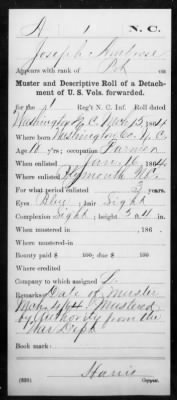 A | 1 | N. C.
Joseph Ambrose
Appears with rank of Pvt on
Muster and Descriptive Roll of a Detach-
ment of U. S. Vols. forwarded.
for the 1 Reg't N. C. Inf. Roll dated
Washington, N. C. Mch 13, 1864.
Where born Washington Co. N. C.
Age 18 y'rs; occupation Farmer
When enlisted Jan. 16, 1864.
Where enlisted Plymouth N. C.
For what period enlisted 3 years.
Eyes Blue; hair Light
Complexion Light; height 5 ft. in.
When mustered in , 186 .
Where mustered-in
Bounty paid $ 100; due $ 100
Where credited
Company to which assigned L.
Remarks: Date of Muster
Mustered
by Authority from the
War Dept.
Book mark:
Harris
(339) Copyist.